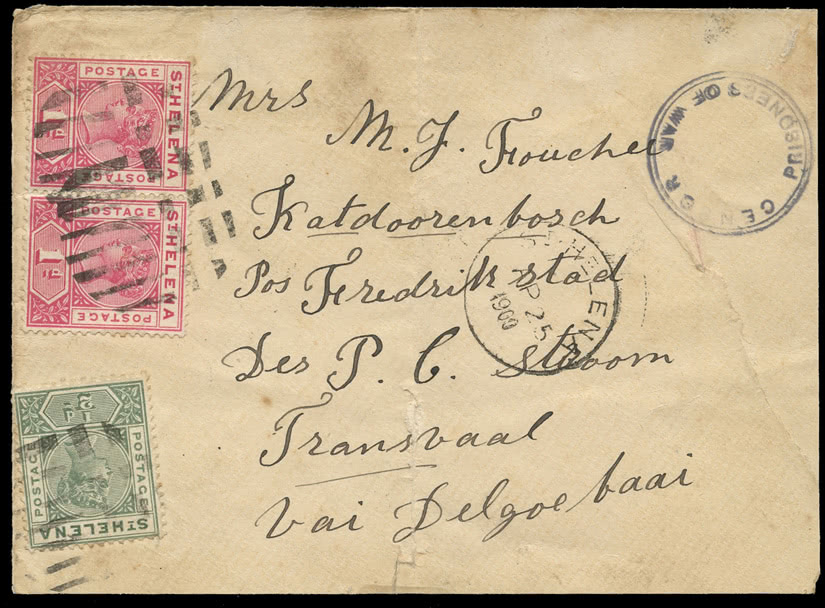 POSTAGE
ST HELENA
1D
POSTAGE
POSTAGE
ST HELENA
1D
POSTAGE
½D
POSTAGE
POSTAGE
ST HELENA
Mrs
M. J. Fouchee
Katdoorenbosch
Pos Fredrikstad
Des P. C. Stroom
Transvaal
Vai Delgoe baai
PRISONERS OF WAR
CEN SR
ST HELENA
AP 25
1900